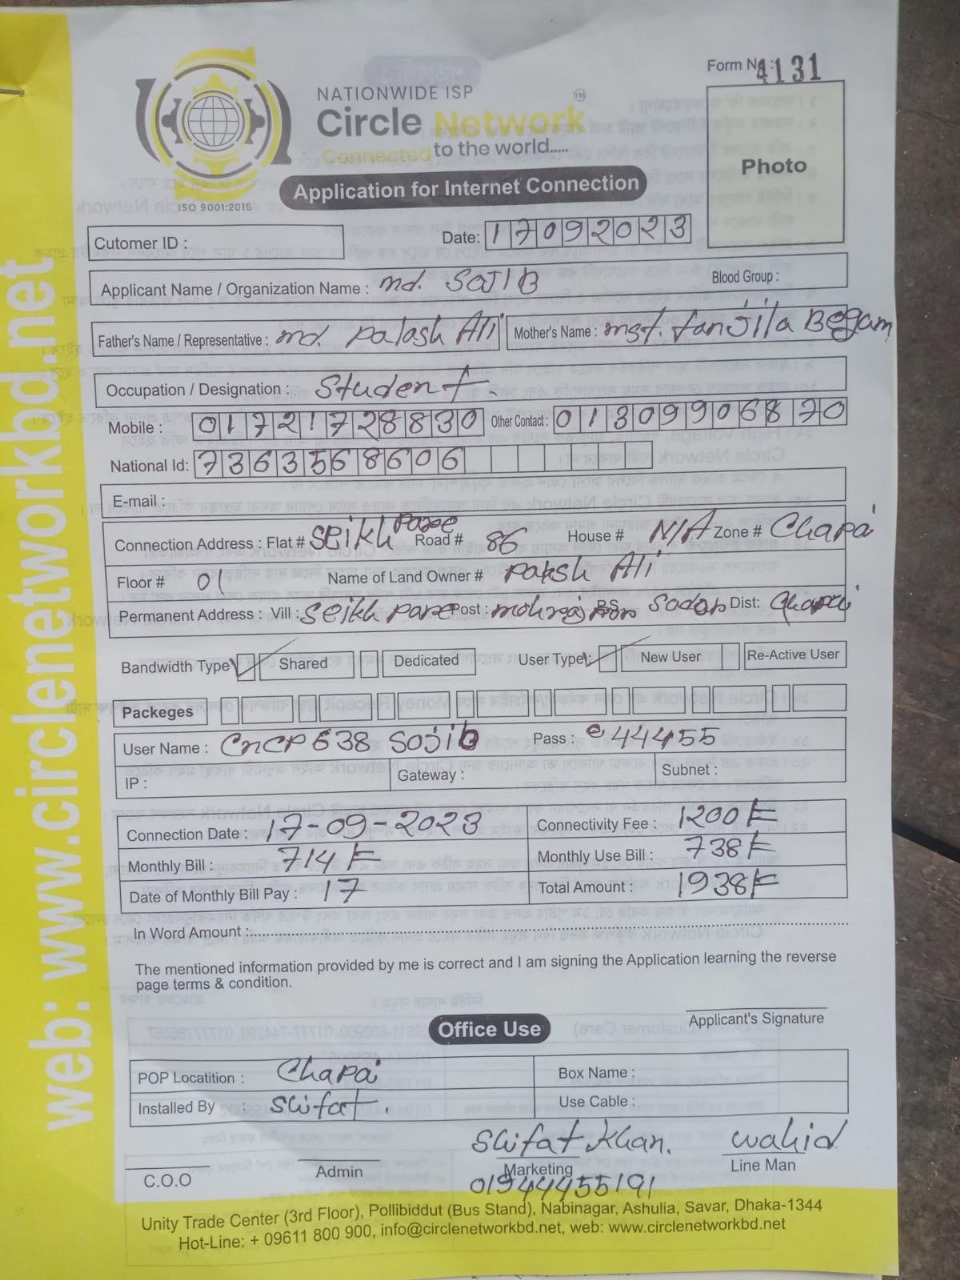 Form No: 4131
NATIONWIDE ISP
Circle Network TM
Connected to the world.....
Application for Internet Connection
ISO 9001:2015
Photo
Cutomer ID :
Date: 17092023
Applicant Name / Organization Name : md. SOJIB
Blood Group :
Father's Name / Representative : md. Palash Ali Mother's Name : mst. Tanjila Begam
Occupation / Designation : Student
Mobile : 01721728830 Other Contact : 01309906870
National Id: 7363568606
E-mail :
Connection Address : Flat # Seikh Pare Road # 86 House # N/A Zone # Chapai
Floor # 01 Name of Land Owner # Palash Ali
Permanent Address : Vill : Seikh Pare Post : PS Sador Dist: Chapai
Bandwidth Type Shared Dedicated User Type New User Re-Active User
Packeges
User Name : CNCP638 Sojib Pass : e44455
IP : Gateway : Subnet :
Connection Date : 17-09-2023 Connectivity Fee : 1200
Monthly Bill : 714 Monthly Use Bill : 738
Date of Monthly Bill Pay : 17 Total Amount : 1938
In Word Amount :
The mentioned information provided by me is correct and I am signing the Application learning the reverse
page terms & condition.
Office Use
Applicant's Signature
POP Locatition : Chapai Box Name :
Installed By : Slifat. Use Cable :
Slifat Khan. Wahid
C.O.O Admin Marketing Line Man
01944455191
Unity Trade Center (3rd Floor), Pollibiddut (Bus Stand), Nabinagar, Ashulia, Savar, Dhaka-1344
Hot-Line: + 09611 800 900, info@circlenetworkbd.net, web: www.circlenetworkbd.net
web: www.circlenetworkbd.net